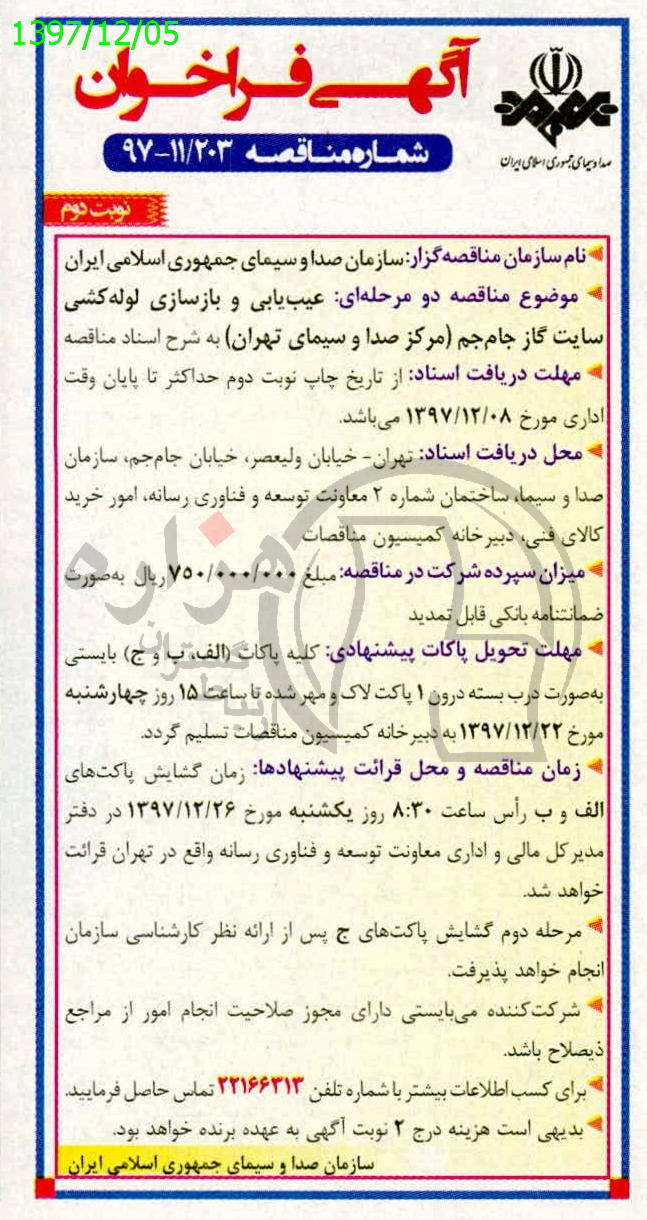 1397/12/05
آگهی فراخوان
صدا و سیمای جمهوری اسلامی ایران
شماره مناقصه ۱۱/۲۰۳-۹۷
نوبت دوم
نام سازمان مناقصه‌گزار: سازمان صدا و سیمای جمهوری اسلامی ایران
موضوع مناقصه دو مرحله‌ای: عیب‌یابی و بازسازی لوله‌کشی
سایت گاز جام‌جم (مرکز صدا و سیمای تهران) به شرح اسناد مناقصه
مهلت دریافت اسناد: از تاریخ چاپ نوبت دوم حداکثر تا پایان وقت
اداری مورخ ۱۳۹۷/۱۲/۰۸ می‌باشد.
محل دریافت اسناد: تهران- خیابان ولیعصر، خیابان جام‌جم، سازمان
صدا و سیما، ساختمان شماره ۲ معاونت توسعه و فناوری رسانه، امور خرید
کالای فنی، دبیرخانه کمیسیون مناقصات
میزان سپرده شرکت در مناقصه: مبلغ ۷۵۰/۰۰۰/۰۰۰ ریال به‌صورت
ضمانتنامه بانکی قابل تمدید
مهلت تحویل پاکات پیشنهادی: کلیه پاکات (الف، ب و ج) بایستی
به‌صورت درب بسته درون ۱ پاکت لاک و مهر شده تا ساعت ۱۵ روز چهارشنبه
مورخ ۱۳۹۷/۱۲/۲۲ به دبیرخانه کمیسیون مناقصات تسلیم گردد.
زمان مناقصه و محل قرائت پیشنهادها: زمان گشایش پاکت‌های
الف و ب رأس ساعت ۸:۳۰ روز یکشنبه مورخ ۱۳۹۷/۱۲/۲۶ در دفتر
مدیر کل مالی و اداری معاونت توسعه و فناوری رسانه واقع در تهران قرائت
خواهد شد.
مرحله دوم گشایش پاکت‌های ج پس از ارائه نظر کارشناسی سازمان
انجام خواهد پذیرفت.
شرکت‌کننده می‌بایستی دارای مجوز صلاحیت انجام امور از مراجع
ذیصلاح باشد.
برای کسب اطلاعات بیشتر با شماره تلفن ۲۲۱۶۶۳۱۳ تماس حاصل فرمایید.
بدیهی است هزینه درج ۲ نوبت آگهی به عهده برنده خواهد بود.
سازمان صدا و سیمای جمهوری اسلامی ایران
هزاره